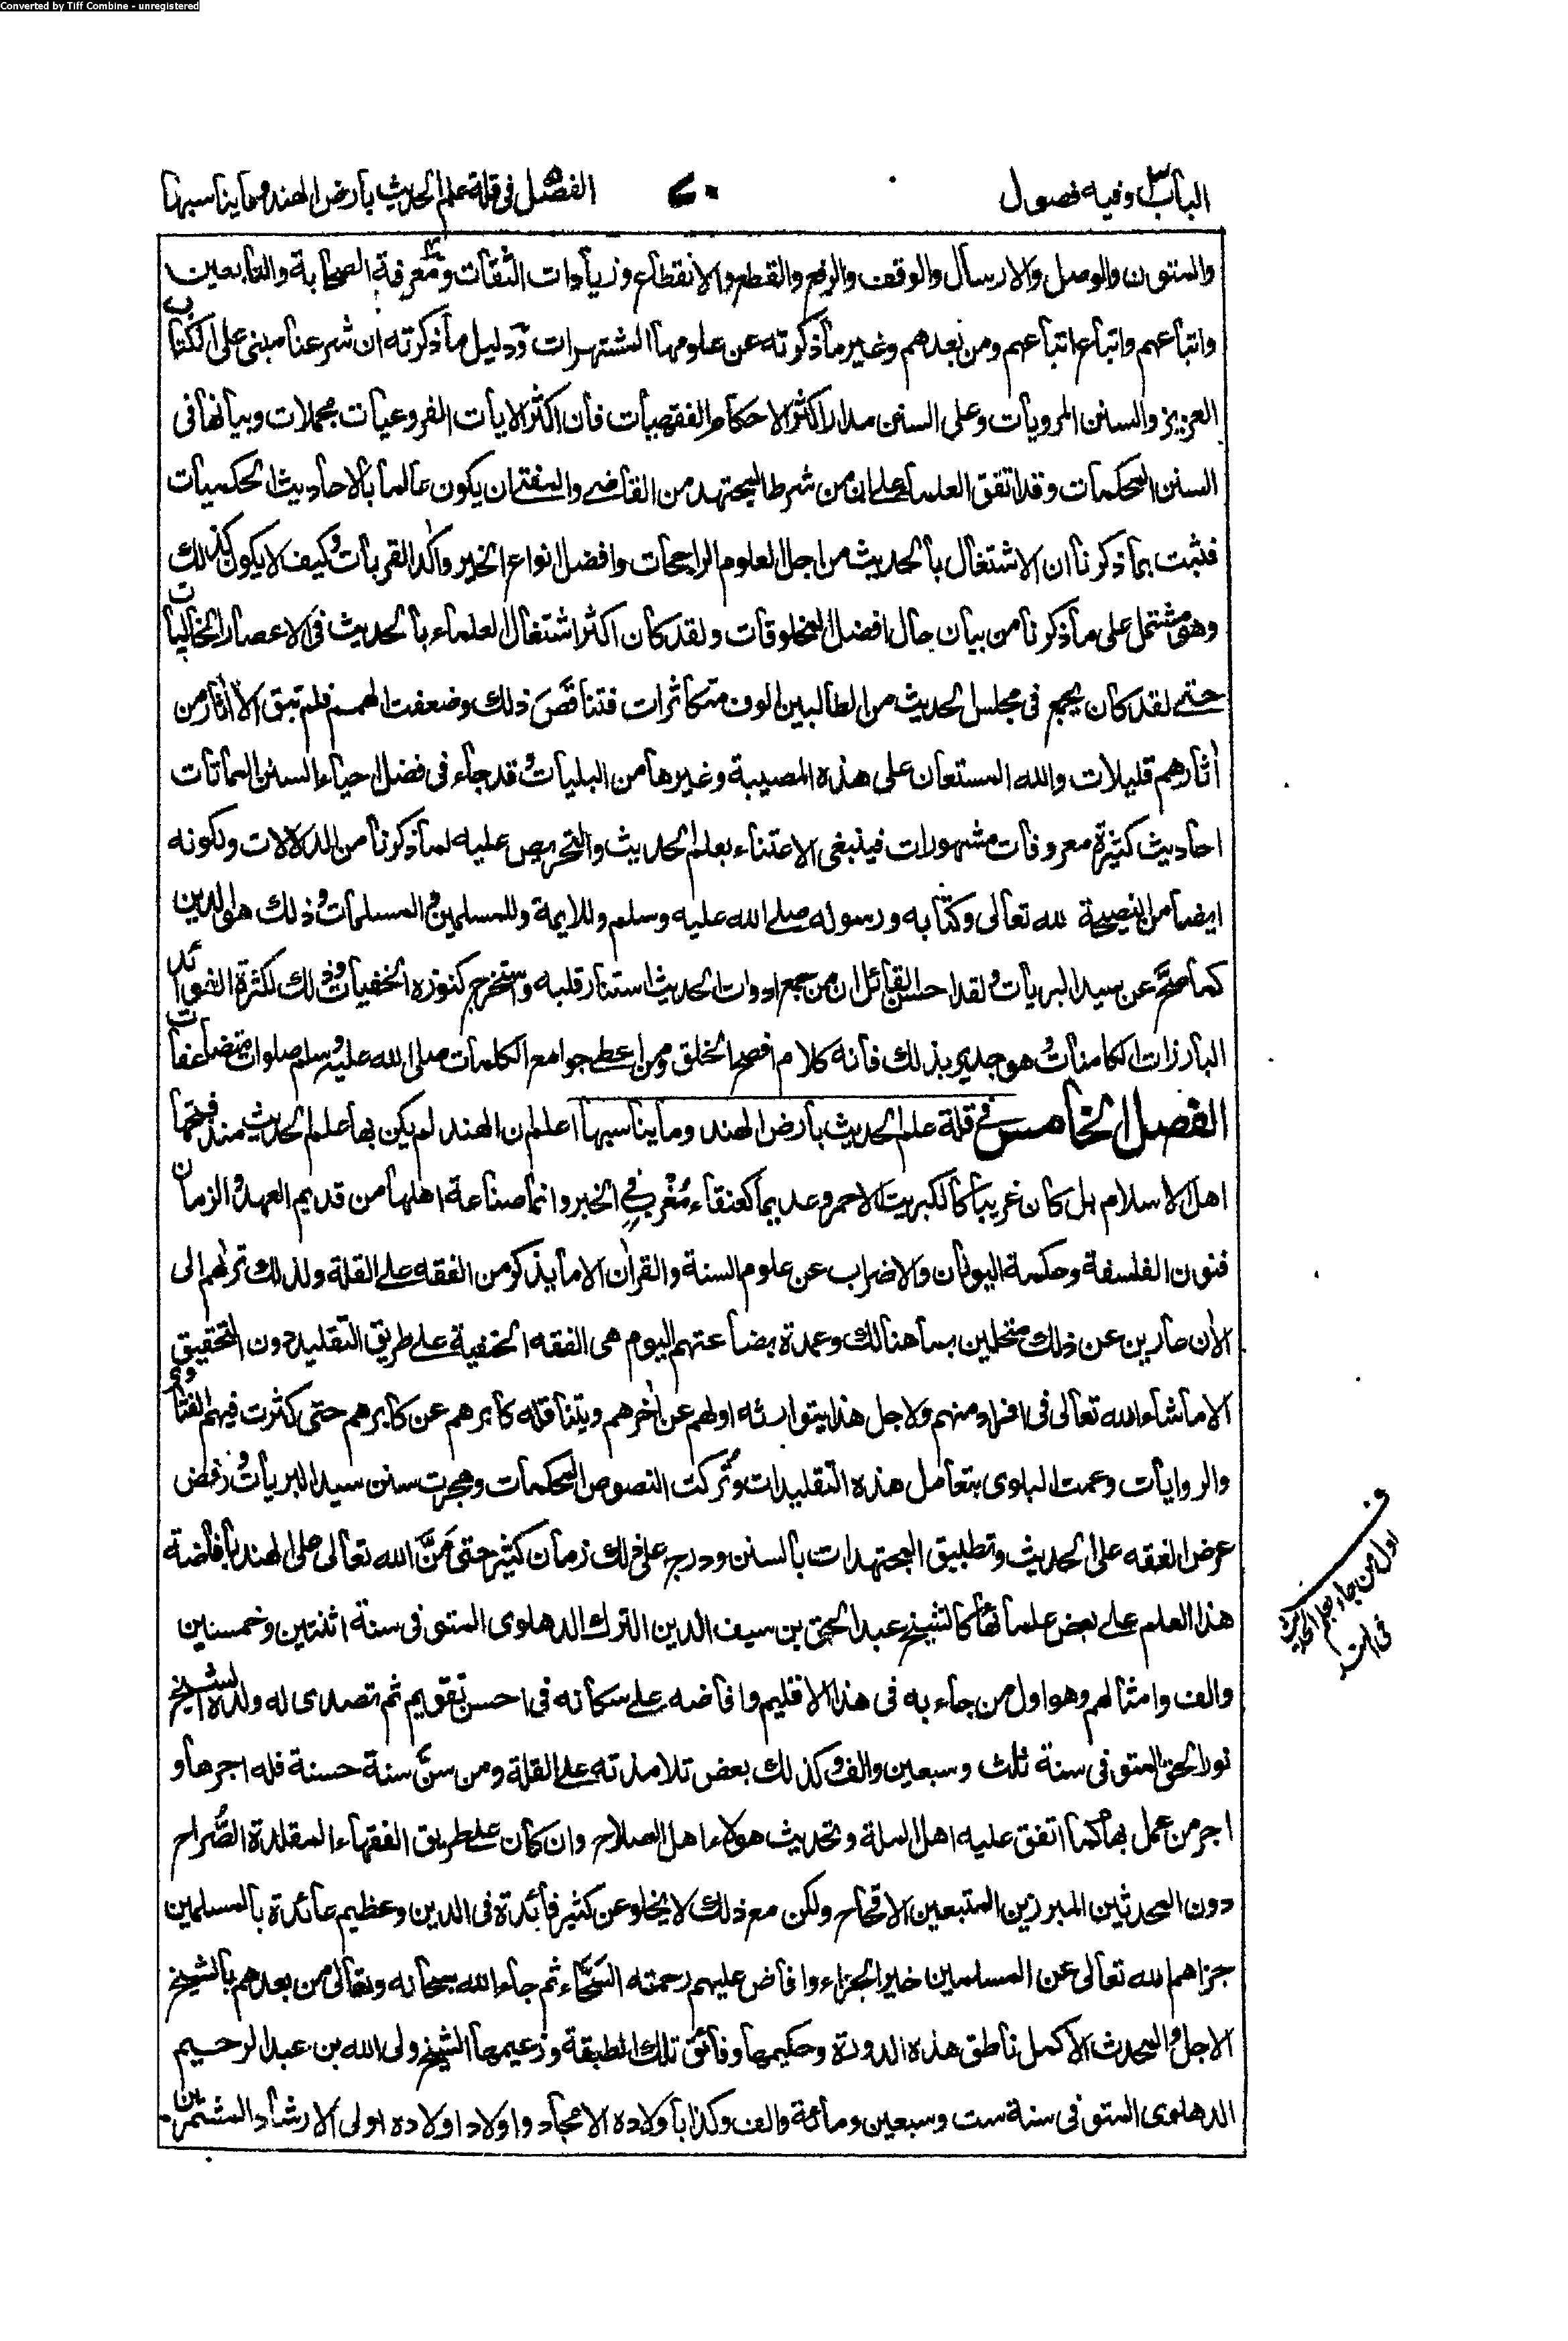 Converted by Tiff Combine - unregistered
الباب وفيه فصول ٧٠ الفصل فى قلة علم الحديث بارض الهند وما يناسبها
والمتون والوصل والارسال والوقف والرفع والقطع والانقطاع وزيادات الثقات ومعرفة الصحابة والتابعين
واتباعهم واتباع اتباعهم ومن بعدهم وغير ما ذكرته عن علومها المشتهرات ودليل ما ذكرته ان شرعنا مبنى على الكتاب
العزيز والسنن المرويات وعلى السنن مدار اكثر الاحكام الفقهيات فان اكثر الايات الفروعيات مجملات وبيانها فى
السنن المحكمات وقد اتفق العلماء على ان من شرط المجتهد من القاضى والمفتى ان يكون عالما بالاحاديث الحكميات
فثبت بما ذكرنا ان الاشتغال بالحديث من اجل العلوم الراجحات وافضل انواع الخير واكد القربات وكيف لا يكون كذلك
وهو مشتمل على ما ذكرنا من بيان حال افضل المخلوقات ولقد كان اكثر اشتغال العلماء بالحديث فى الاعصار الخاليات
حتى لقد كان يجمع فى مجلس الحديث من الطالبين الوف متكاثرات فتناقص ذلك وضعفت الهمم فلم تبق الا اثار من
اثارهم قليلات والله المستعان على هذه المصيبة وغيرها من البليات وقد جاء فى فضل احياء السنن المماتات
احاديث كثيرة معروفات مشهورات فينبغى الاعتناء بعلم الحديث والتحريص عليه لما ذكرنا من الدلالات ولكونه
ايضا من النصيحة لله تعالى وكتابه ورسوله صلى الله عليه وسلم وللايمة وللمسلمين والمسلمات وذلك هو الدين
كما صح عن سيد البريات ولقد احسن القائل ان من جمع ادوات الحديث استنار قلبه واستخرج كنوزه الخفيات وذلك لكثرة الفوائد
البارزات الكامنات وهو جدير بذلك فانه كلام افصح الخلق ومن اعطى جوامع الكلمات صلى الله عليه وسلم صلوات متضاعفات
الفصل الخامس فى قلة علم الحديث بارض الهند وما يناسبها اعلم ان الهند لم يكن بها علم الحديث منذ فتحها
اهل الاسلام بل كان غريبا كالكبريت الاحمر وعديما كعنقاء مُغْرب فى الخبر وانما صناعة اهلها من قديم العهد والزمان
فنون الفلسفة وحكمة اليونان والاضراب عن علوم السنة والقران الا ما يذكر من الفقه على القلة ولذلك تراهم الى
الان عارين عن ذلك متحلين بما هنالك وعمدة بضاعتهم اليوم هى الفقه الحنفية على طريق التقليد دون التحقيق
الا ما شاء الله تعالى فى افراد منهم ولاجل هذا يتوارثه اولهم عن اخرهم ويتناقله كابرهم عن كابرهم حتى كثرت فيهم الفتاوى
والروايات وعمت البلوى بتعامل هذه التقليدات وتُركت النصوص المحكمات وهجرت سنن سيد البريات ورفض
عرض الفقه على الحديث وتطبيق المجتهدات بالسنن ودرج على ذلك زمان كثير حتى مَنَّ الله تعالى على الهند بافاضة
هذا العلم على بعض علمائها كالشيخ عبد الحق بن سيف الدين الترك الدهلوى المتوفى سنة اثنتين وخمسنين
والف وامثالهم وهو اول من جاء به فى هذا الاقليم وافاضه على سكانه فى احسن تقويم ثم تصدى له ولده الشيخ
نور الحق المتوفى سنة ثلث وسبعين والف وكذلك بعض تلامذته على القلة ومن سنَّ سنة حسنة فله اجرها و
اجر من عمل بها كما اتفق عليه اهل الملة وتحديث هولاء اهل الصلاح وان كان على طريق الفقهاء المقلدة الصُّراح
دون المحدثين المبرزين المتبعين الاقحاح ولكن مع ذلك لا يخلو عن كثير فائدة فى الدين وعظيم عائدة بالمسلمين
جزاهم الله تعالى عن المسلمين خير الجزاء وافاض عليهم رحمته السَحَّاء ثم جاء الله سبحانه وتعالى من بعدهم بالشيخ
الاجل والمحدث الاكمل ناطق هذه الدورة وحكيمها وفائق تلك الطبقة وزعيمها الشيخ ولى الله بن عبد الرحيم
الدهلوى المتوفى سنة ست وسبعين ومائة والف وكذا باولاده الامجاد واولاد اولاده اولى الارشاد المشتمرين
ف
اول من جاء بعلم الحديث
فى الهند